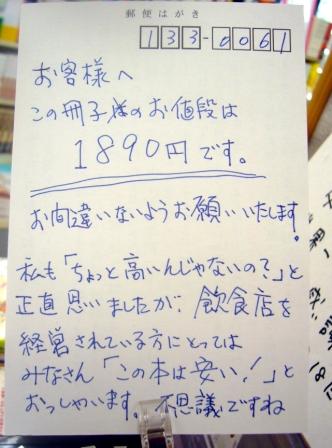 郵便はがき
133-0061
お客様へ
この冊子様のお値段は
1890円です。
お間違いないようお願いいたします。
私も「ちょっと高いんじゃないの？」と
正直思いましたが、飲食店を
経営されている方にとっては
みなさん「この本は安い！」と
おっしゃいます。不思議ですね